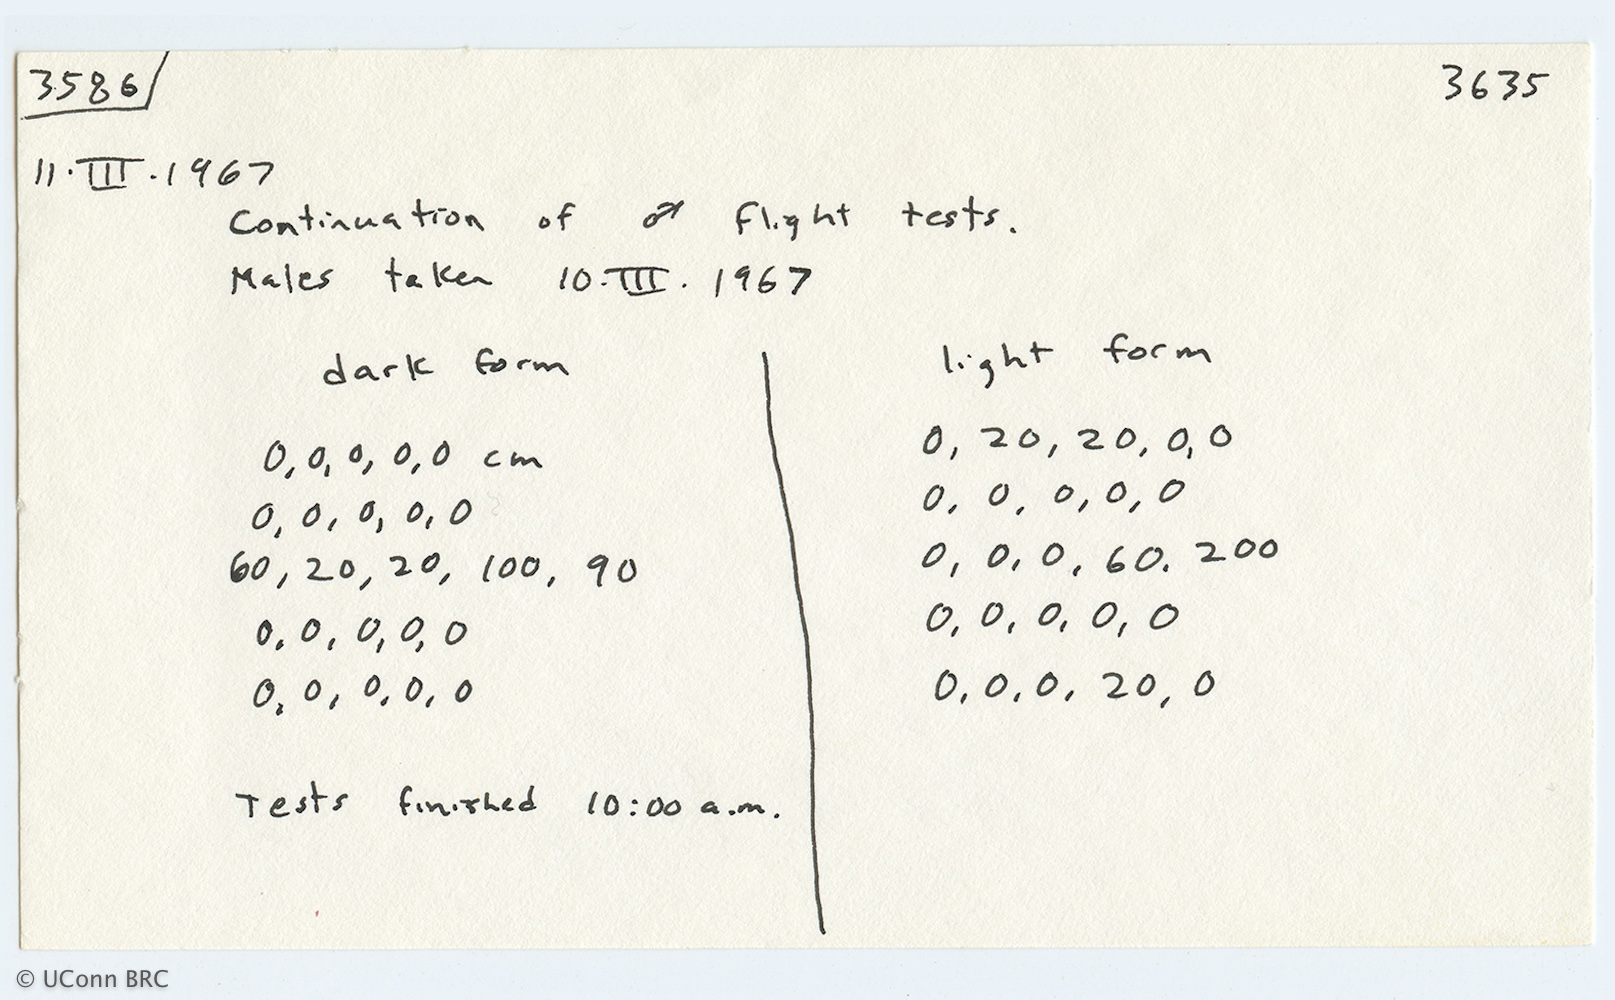 3586 3635
11.III.1967
Continuation of ♂ flight tests.
Males taken 10.III.1967
dark form
0, 0, 0, 0, 0 cm
0, 0, 0, 0, 0
60, 20, 20, 100, 90
0, 0, 0, 0, 0
0, 0, 0, 0, 0
Tests finished 10:00 a.m.
light form
0, 20, 20, 0, 0
0, 0, 0, 0, 0
0, 0, 0, 60. 200
0, 0, 0, 0, 0
0, 0, 0, 20, 0
© UConn BRC